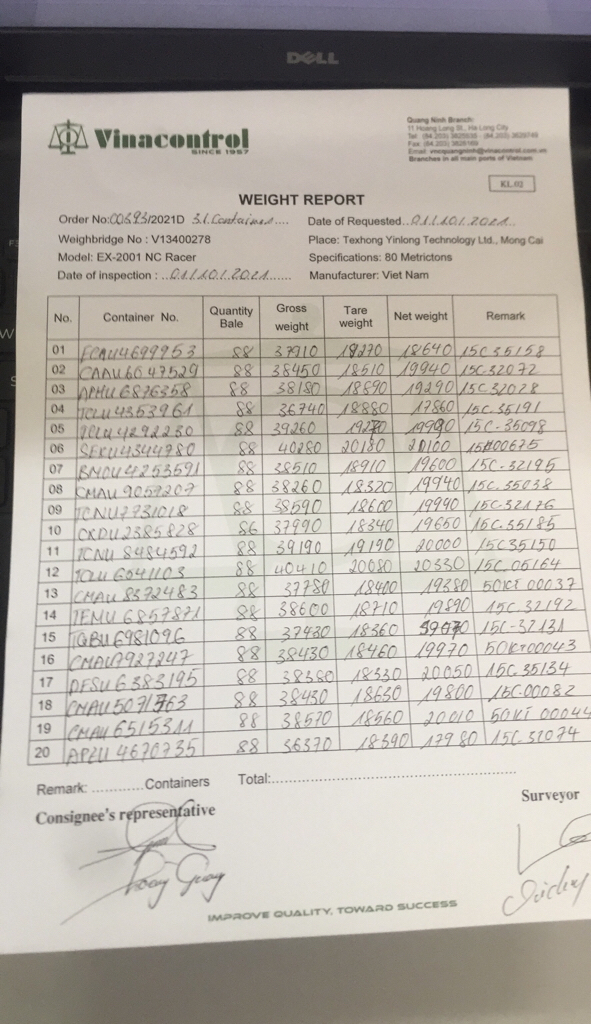 DELL
Vinacontrol
SINCE 1957
Quang Ninh Branch:
11 Hoang Long St., Ha Long City
Branches in all main ports of Vietnam
KL.02
WEIGHT REPORT
Order No: 00593/2021D 31 Containers.... Date of Requested..01/10/2021..
Weighbridge No : V13400278 Place: Texhong Yinlong Technology Ltd., Mong Cai
Model: EX-2001 NC Racer Specifications: 80 Metrictons
Date of inspection : ..01/10/2021...... Manufacturer: Viet Nam
No. Container No. Quantity Bale Gross weight Tare weight Net weight Remark
01 FCAU4699953 88 37910 19270 18640 15C35158
02 CAAU6647529 88 38450 18510 19940 15C-32072
03 APHU6876358 88 38180 18890 19290 15C32028
04 TCLU4353961 88 36740 18880 17860 15C-35191
05 88 39260 15C-35098
06 SEKU4344780 88 40280 20180 20100
07 BMOU4253591 88 38510 18910 19600 15C-32195
08 CMAU9057207 88 38260 18320 19940 15C.35038
09 TCNU7731018 88 38590 19940 15C-32176
10 CXDU2385828 86 37990 18340 19650 15C.35185
11 TCNU8484592 88 39190 19190 20000 15C35150
12 TCLU6041103 88 40410 20080 20330 15C.06164
13 CMAU8372483 88 37780 18400 19380 50KT 00037
14 TEMU6857871 88 38600 18710 19890 15C.32192
15 TGBU6981096 88 37430 18360 15C-32131
16 CMAU7927247 88 38430 18460 19970 50KT00043
17 DFSU6383195 88 38380 18330 20050 15C.35134
18 CMAU5071763 88 38430 18630 19800 15C.00082
19 CMAU6515311 88 38570 18560 20010 50KT 00044
20 APZU4670735 88 36370 18390 17980 15C.32074
Remark: ............Containers Total:..........................................................
Consignee's representative Surveyor
IMPROVE QUALITY, TOWARD SUCCESS